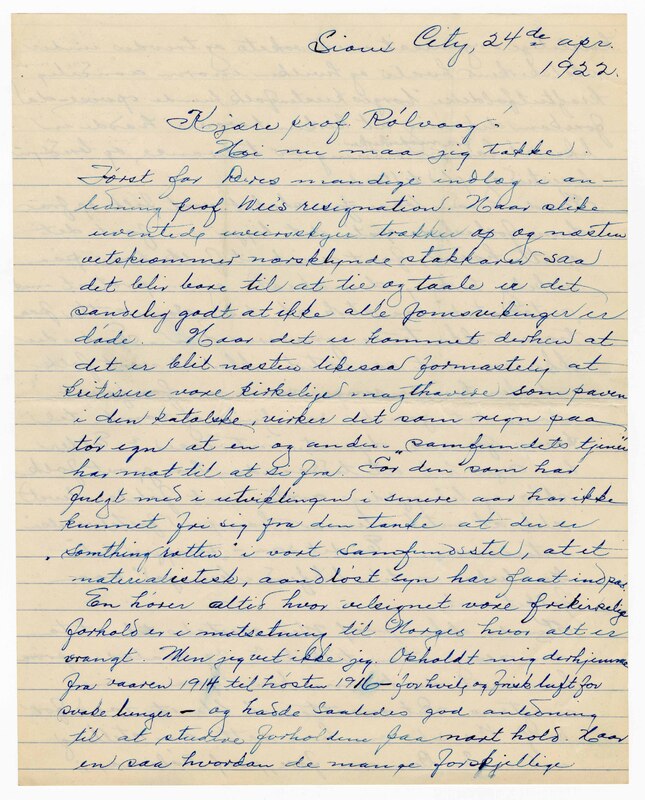 Sioux City, 24de apr.
1922.
Kjære prof. Rölvaag.
Nei nu maa jeg takke.
Først for Deres mandige indlæg i an-
ledning prof. Wee's resignation. Naar slike
uventede uveirsskyer trækker op og næsten
vetskræmmer norsklynde stakkarer saa
det blir bare til at tie og taale er det
sandelig godt at ikke alle Jomsvikinger er
døde. Naar det er kommet derhen at
det er blit næsten likesaa formastelig at
kritisere vore kirkelige magthavere som paven
i den katolske, virker det som regn paa
tør egn at en og anden "samfundets tjener"
har mot til at si fra. For den som har
fulgt med i utviklingen i senere aar har ikke
kunnet fri sig fra den tanke at der er
"somthing rotten" i vort samfundsstel, at et
materialistisk, aandløst syn har faat indpas.
En hører altid hvor velsignet vore frikirkelige
forhold er i motsetning til Norges hvor alt er
vrangt. Men jeg vet ikke jeg. Opholdt mig derhjemme
fra vaaren 1914 til høsten 1916 - for hvile og frisk luft for
svake lunger - og hadde saaledes god anledning
til at studere forholdene paa nært hold. Naar
en saa hvordan de mange forskjellige